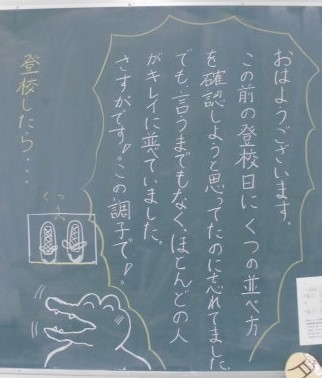 おはようございます。
この前の登校日にくつの並べ方
を確認しようと思ってたのに忘れてました。
でも、言うまでもなく、ほとんどの人
がキレイに並べていました。
さすがです!。この調子で!。
登校したら・・・
くつ